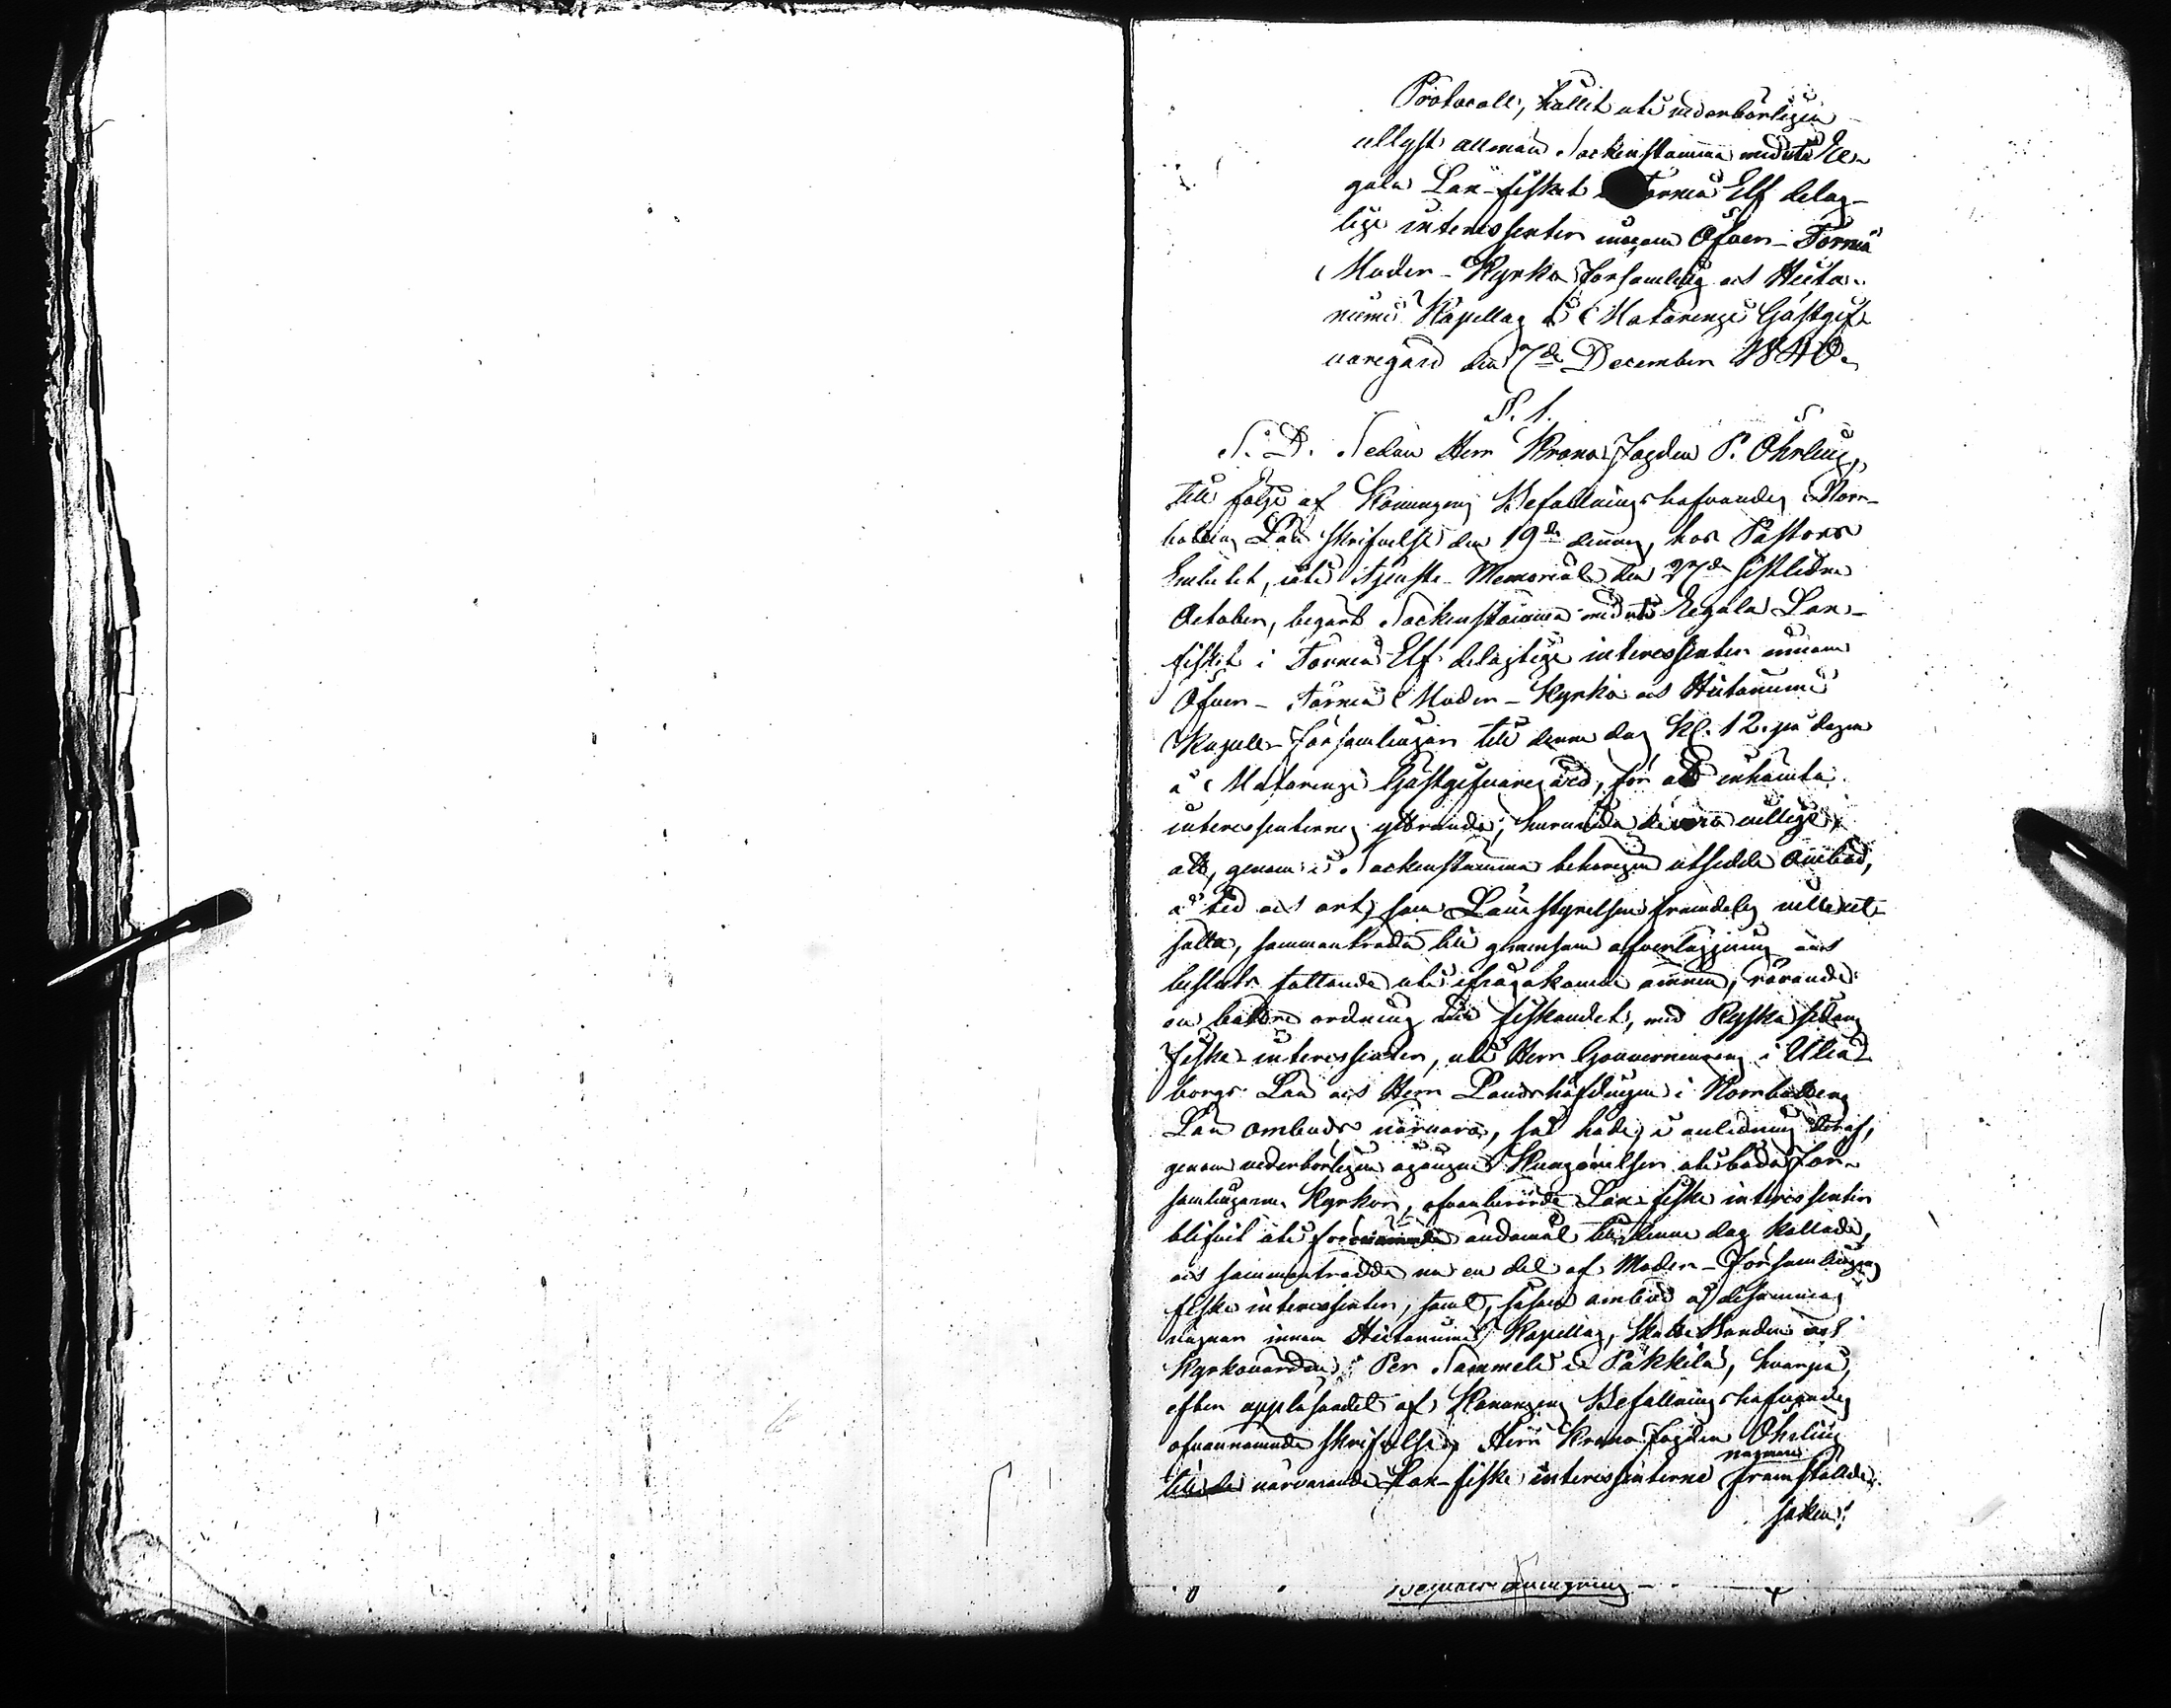 Protocoll, hållit uti vederbörligen
utlyst allmän Sockenstämma med uti Re-
gala Lax-fisket i Torneå Elf delag-
tige interessenter inom Öfver-Torneå
Moder-Kyrko församling och Hieta-
niemi Kapellag å Matarengi Gästgif-
varegård den 7de December 1840.
§. 1.
S. D. Sedan Herr Krono Fogden P. Ohrling,
till följe af Konungens Befallningshafvandes i Norr-
bottens Län skrifvelse den 19de dennes, hos Pastors
Embetet, uti Tjenste-Memorial den 27de sistlidne
October, begärt Sockenstämma med uti Regala Lax-
fisket i Torneå Elf delagtige interessenter innom
Öfver-Torneå Moder-Kyrko och Hietaniemi
Kapell-Församlingar till denne dag Kl. 12. på dagen
å Matarengi Gästgifvaregård, för att inhämta
interessenternes yttrande, huruvida de voro villige,
att, genom å Sockenstämma behörigen utsedde Ombud,
å tid och ort, som Länestyrelsen framdeles ville ut-
sätta, sammanträda till gemensam öfverläggning och
besluts fattande uti ifrågakomne ämnen, rörande
en bättre ordning vid fiskandet, med Ryska sidans
fiske-interessenter, uti Herr Gouverneurens i Uleå-
borgs Län och Herr Landshöfdingen i Norrbottens
Län ombuds närvaro, så hade, i anledning deraf,
genom vederbörligen uppläsne Kungörelser uti båda För-
samlingarnes Kyrkor, ofvanberörde Lax-fiske interessenter
blifvit uti ändamål till denne dag kallade,
och sammanträdde nu en del af Moder-Församlingens
fiske interessenter, samt, såsom ombud å desammes
vägnar innom Hietaniemi Kapellag, Skatte Bonden och
Kyrkovärden Per Sammeli i Päkkilä, hvarpå,
efter uppläsandet af Konungens Befallningshafvandes
ofvannämnde skrifvelse, Herr Krono Fogden Ohrling
till de närvarande Lax-fiske interessenterne framställde
saken: